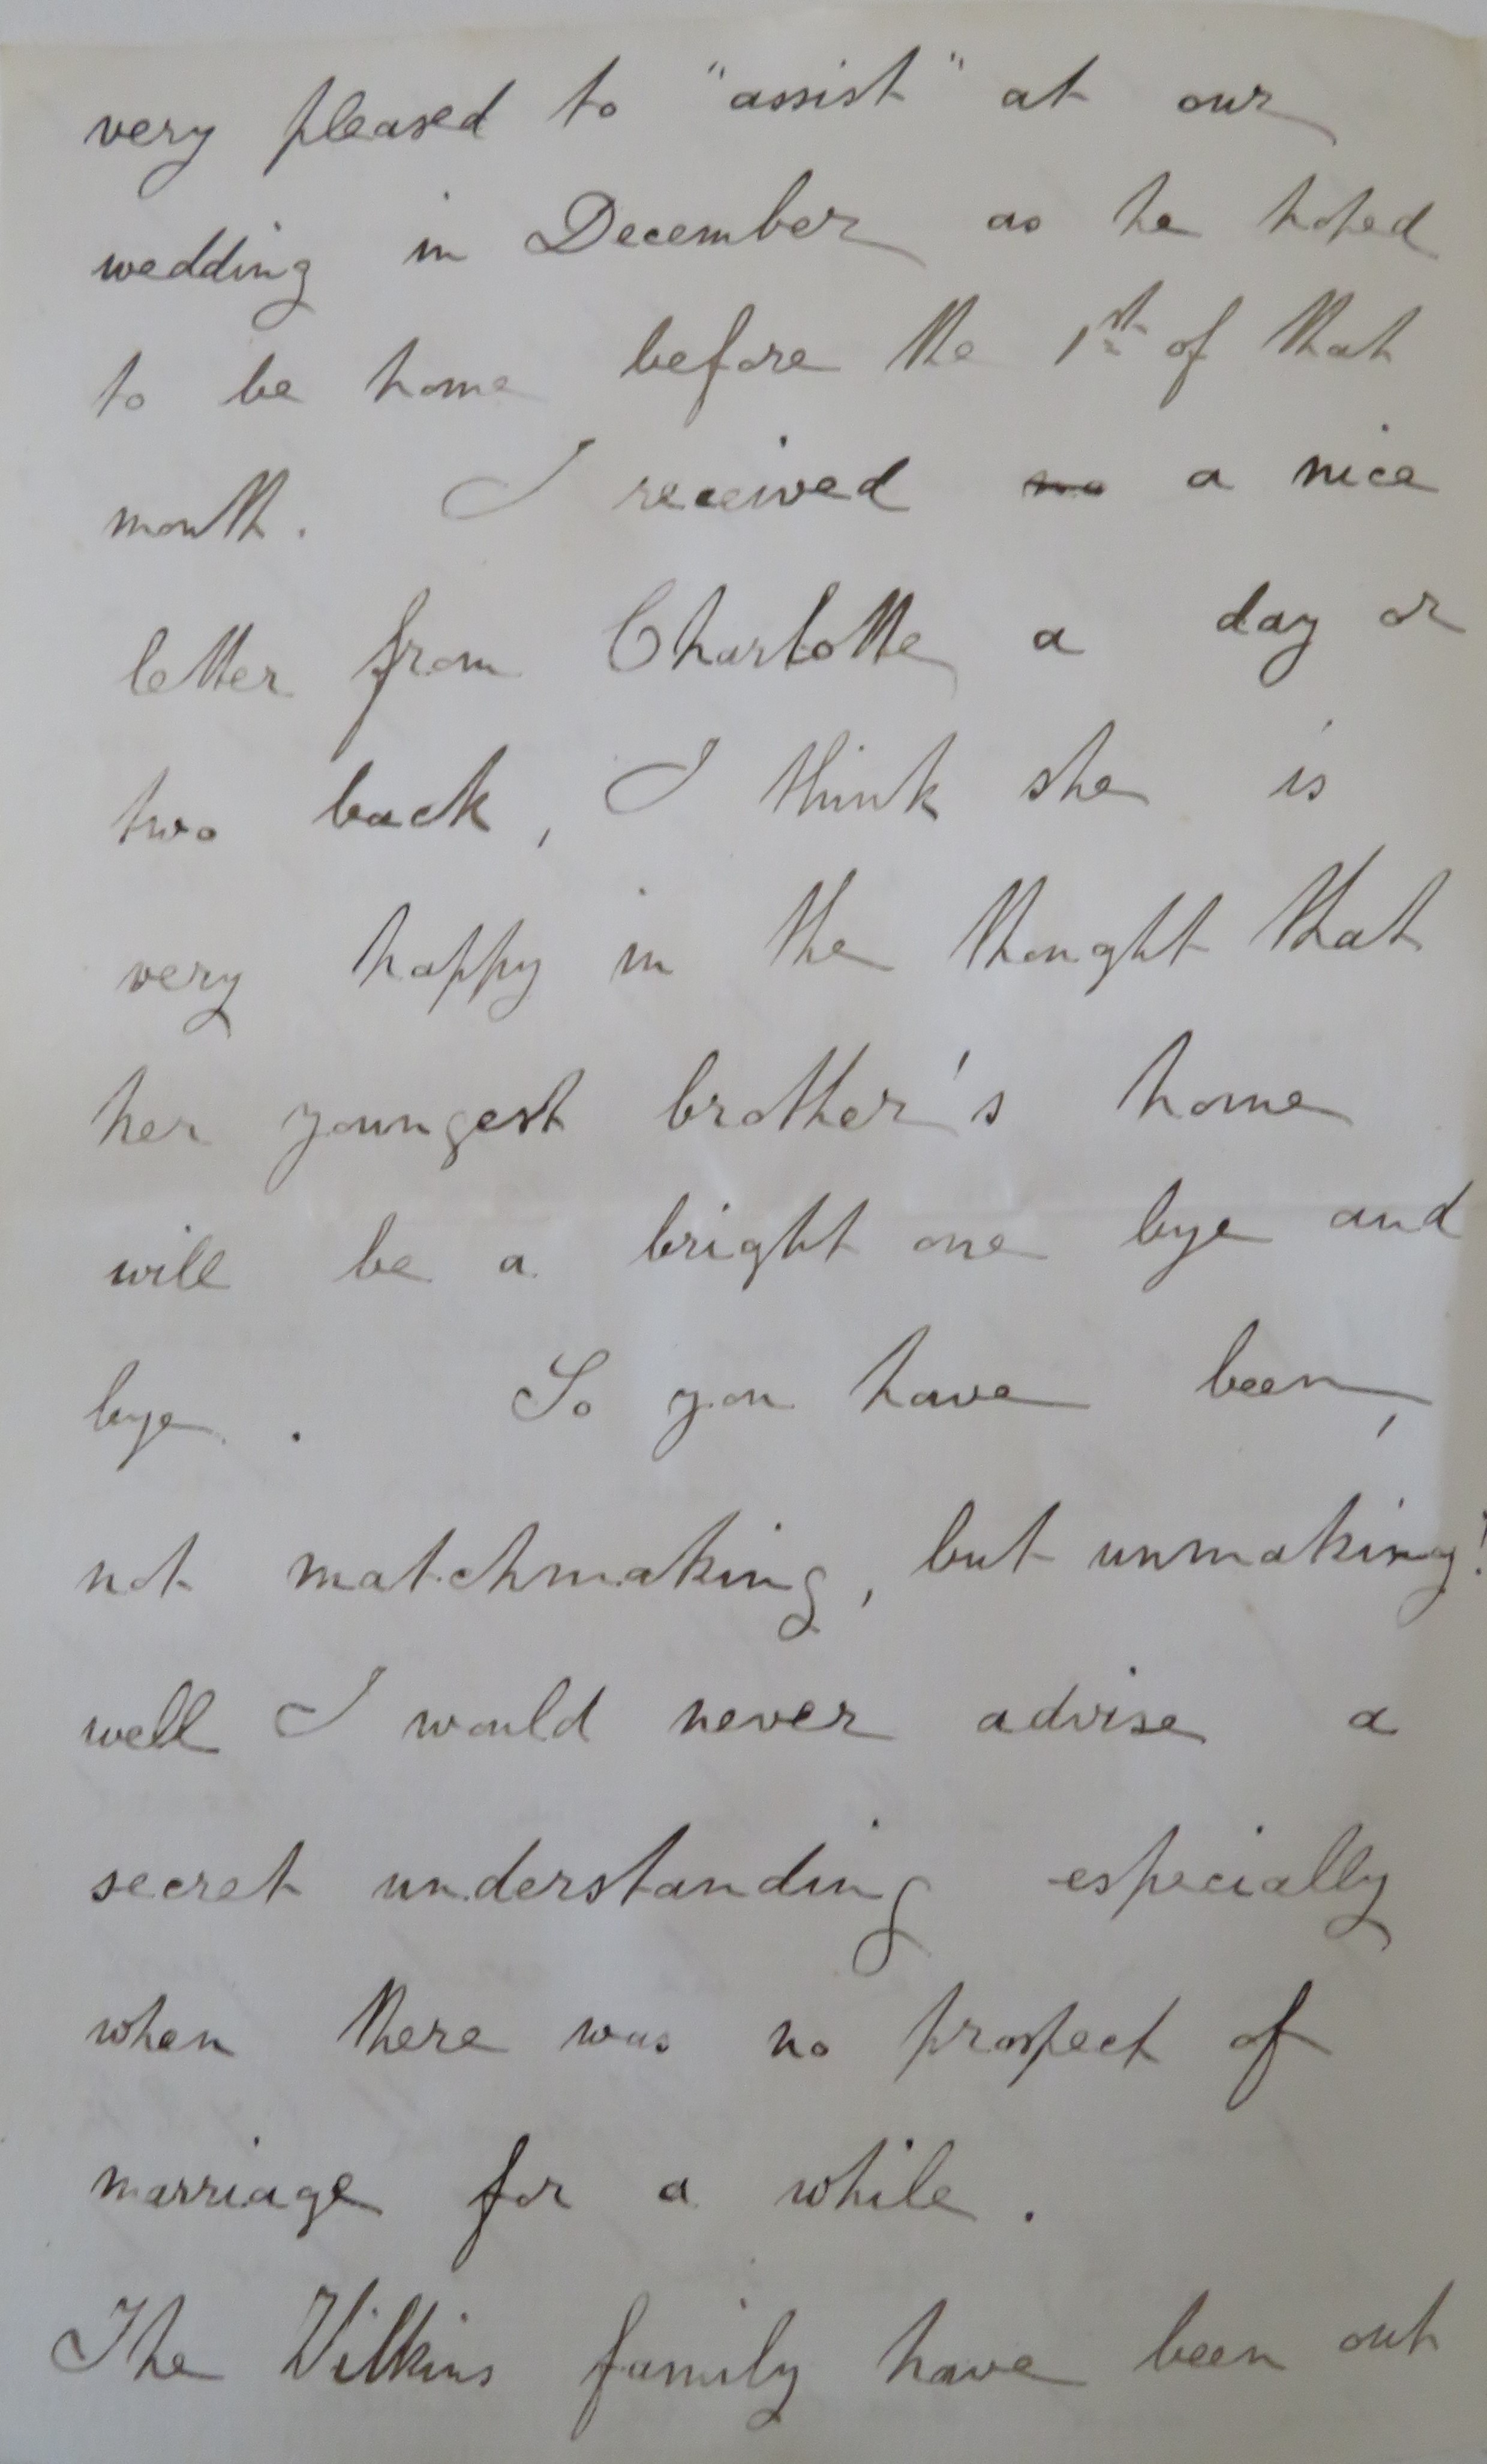 very pleased to "assist" at our
wedding in December as he hoped
to be home before the 1st of that
month. I received no a nice
letter from Charlotte a day or
two back, I think she is
very happy in the thought that
her youngest brother's home
will be a bright one bye and
bye. So you have been,
not matchmaking, but unmaking!
well I would never advise a
secret understanding especially
when there was no prospect of
marriage for a while.
The Wilkins family have been out